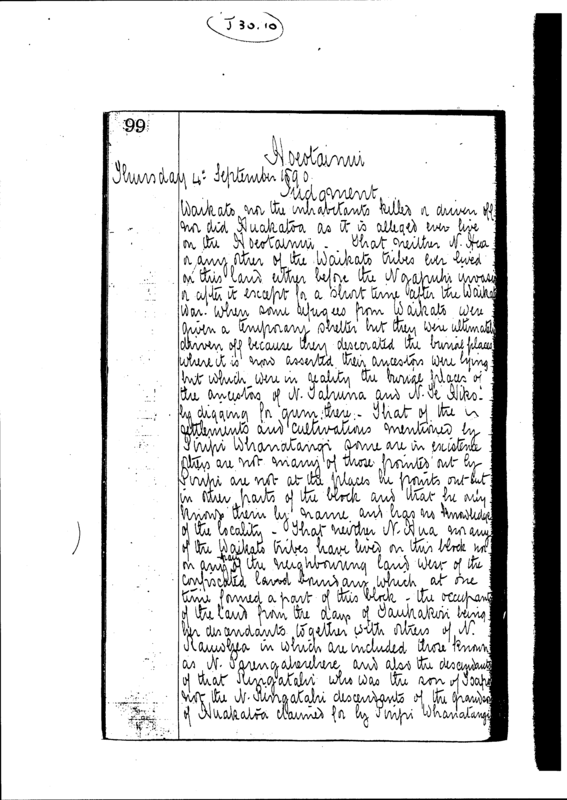 J 30.10
99
Hoeotainui
Thursday 4th September 1890
Judgment
Waikato nor the inhabitants killed or driven off
nor did Huakatoa as it is alleged ever live
on the Hoeotainui - That neither N. Hua
or any other of the Waikato tribes ever lived
on this land either before the Ngapuhi invasi
or after it except for a short time after the Waikat
War when some refugees from Waikato were
given a temporary shelter but they were ultimatel
driven off because they desecrated the burial places
where it is now asserted their ancestors were lying
but which were in reality the burial places of
the ancestors of N. Tahuna and N. Te Hiko
by digging for gum there - That of the
settlements and cultivations mentioned by
Piripi Whanatangi some are in existence
others are not many of those pointed out by
Piripi are not at the places he points out but
in other parts of the block and that he only
knows them by name and has no knowledge
of the locality - That neither N. Hua nor any
of the Waikato tribes have lived on this block nor
on any of the neighbouring land west of the
confiscated land boundary which at one
time formed a part of this block - the occupants
of the land from the days of being
her descendants together with others of N.
in which are included those known
as N. and also the descendants
of that Ringatahi who was the son of
not the N. Ringatahi descendants of the grandso
of Huakatoa claimed for by Piripi Whanatangi